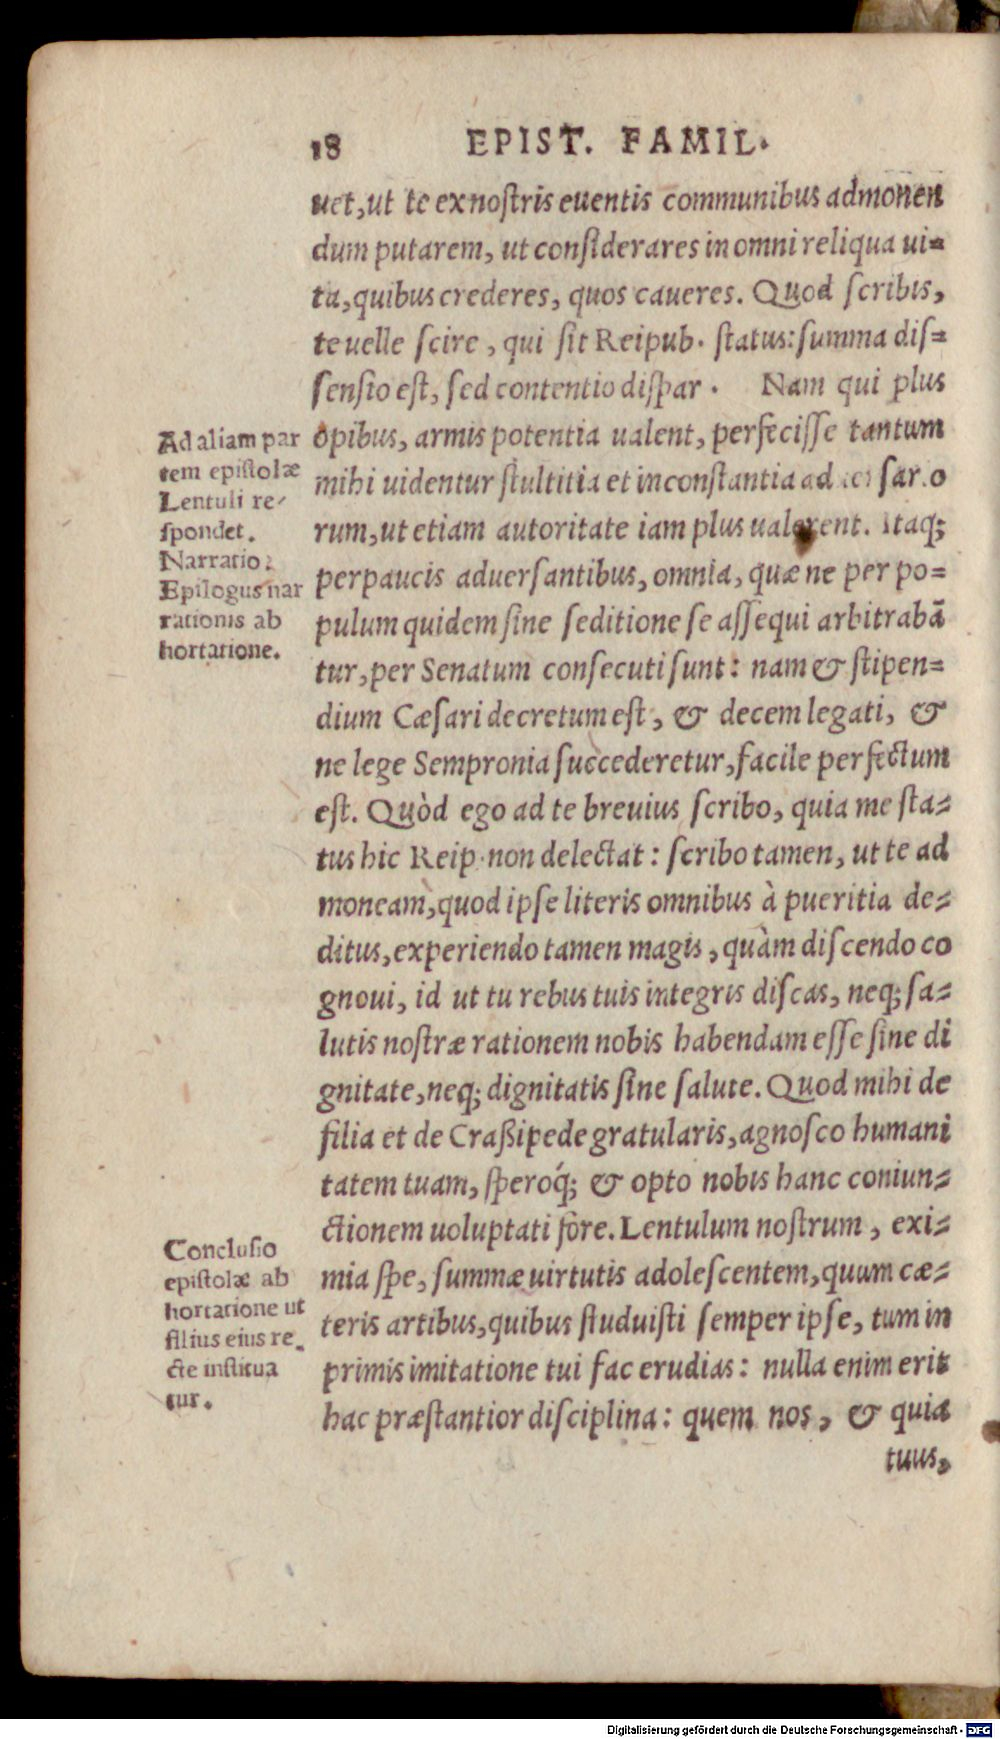 18 EPIST. FAMIL.
uet, ut te ex noſtris euentis communibus admonen
dum putarem, ut conſiderares in omni reliqua ui=
ta, quibus crederes, quos caueres. Quod ſcribis,
te uelle ſcire, qui ſit Reipub. ſtatus: ſumma diſ=
ſenſio eſt, ſed contentio diſpar. Nam qui plus
opibus, armis potentia ualent, perfeciſſe tantum
mihi uidentur ſtultitia et inconſtantia aduerſario
rum, ut etiam autoritate iam plus ualerent. Itaq;
perpaucis aduerſantibus, omnia, quæ ne per po=
pulum quidem ſine ſeditione ſe aſſequi arbitrabã
tur, per Senatum conſecuti ſunt: nam & ſtipen=
dium Cæſari decretum eſt, & decem legati, &
ne lege Sempronia ſuccederetur, facile perfectum
eſt. Quòd ego ad te breuius ſcribo, quia me ſta=
tus hic Reip. non delectat: ſcribo tamen, ut te ad
moneam, quod ipſe literis omnibus à pueritia de=
ditus, experiendo tamen magis, quàm diſcendo co
gnoui, id ut tu rebus tuis integris diſcas, neq; ſa=
lutis noſtræ rationem nobis habendam eſſe ſine di
gnitate, neq; dignitatis ſine ſalute. Quod mihi de
filia et de Craßipede gratularis, agnoſco humani
tatem tuam, ſperoq́; & opto nobis hanc coniun=
ctionem uoluptati fore. Lentulum noſtrum, exi=
mia ſpe, ſummæ uirtutis adoleſcentem, quum cæ=
teris artibus, quibus ſtuduiſti ſemper ipſe, tum in
primis imitatione tui fac erudias: nulla enim erit
hac præſtantior diſciplina: quem nos, & quia
tuus,
Ad aliam par
tem epiſtolæ
Lentuli re-
ſpondet.
Narratio.
Epilogus nar
rationis ab
hortatione.
Concluſio
epiſtolæ ab
hortatione ut
filius eius re-
cte inſtitua
tur.
Digitalisierung gefördert durch die Deutsche Forschungsgemeinschaft - DFG